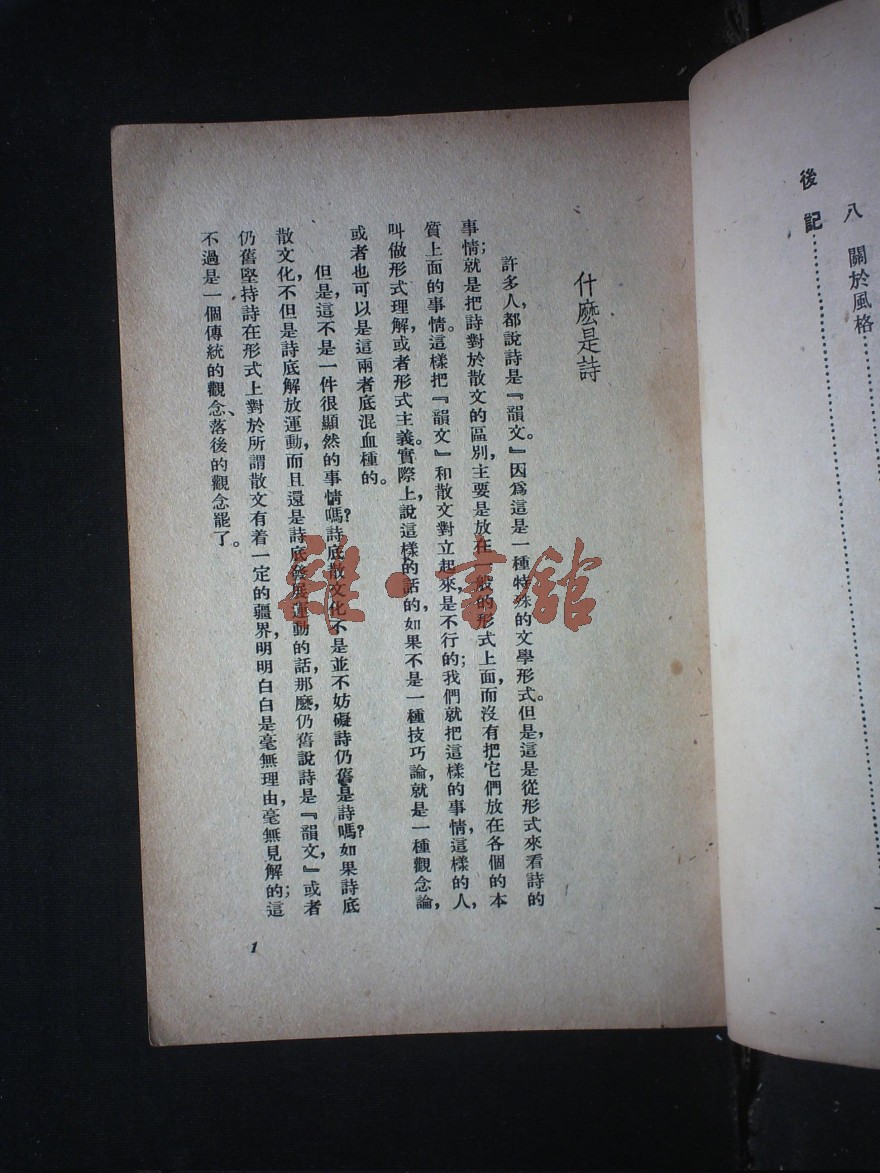 八　關於風格………………
後　記………………………
什麽是詩
許多人，都說詩是『韻文。』因爲這是一種特殊的文學形式。但是，這是從形式來看詩的
事情；就是把詩對於散文的區別，主要是放在一般的形式上面，而沒有把它們放在各個的本
質上面的事情。這樣把『韻文』和散文對立起來，是不行的；我們就把這樣的事情，這樣的人，
叫做形式理解，或者形式主義。實際上，說這樣的話的，如果不是一種技巧論，就是一種觀念論，
或者也可以是這兩者底混血種的。
但是，這不是一件很顯然的事情嗎？詩底散文化不是並不妨礙詩仍舊是詩嗎？如果詩底
散文化，不但是詩底解放運動，而且還是詩底發展運動的話，那麽，仍舊說詩是『韻文，』或者
仍舊堅持詩在形式上對於所謂散文有着一定的疆界，明明白白是毫無理由，毫無見解的；這
不過是一個傳統的觀念、落後的觀念罷了。
1
雜·書館